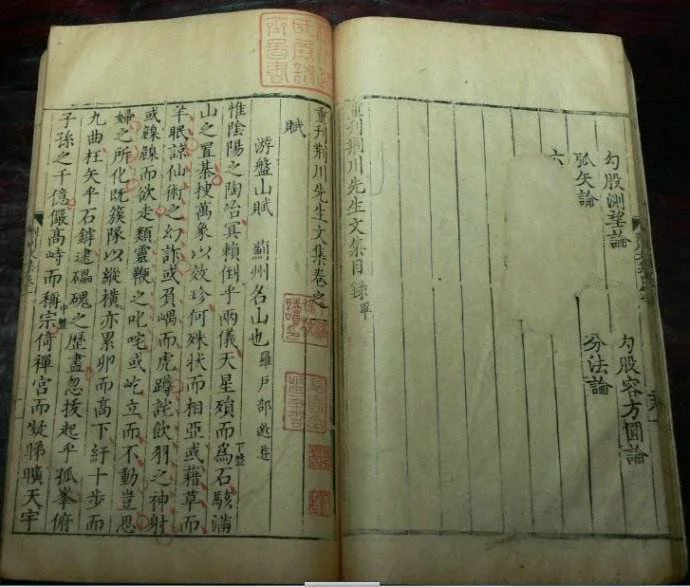 勾股測望論 勾股容方圓論
弧矢論 分法論
六
重刊荊川先生文集目錄畢
重刊荊川先生文集卷之一
賦
游盤山賦 薊州名山也 羅戶部邀遊
惟陰陽之陶冶冥賴倒乎兩儀天星殞而爲石駭滿下盤
山之置棊摟萬象以效珍何殊狀而相亞或藉草而
羊眠諒仙術之幻詐或負嵎而虎蹲詫飲羽之神射
或饙饙而欲走類靈鞭之叱咤或屹立而不動豈思
婦之所化既簇隊以縱橫亦累卵而高下紆十步而
九曲枉矢乎石罅逮磈磊之歷盡忽拔起乎孤峯俯中盤
子孫之千億儼高峙而稱宗倚禪宮而凝睇曠天宇